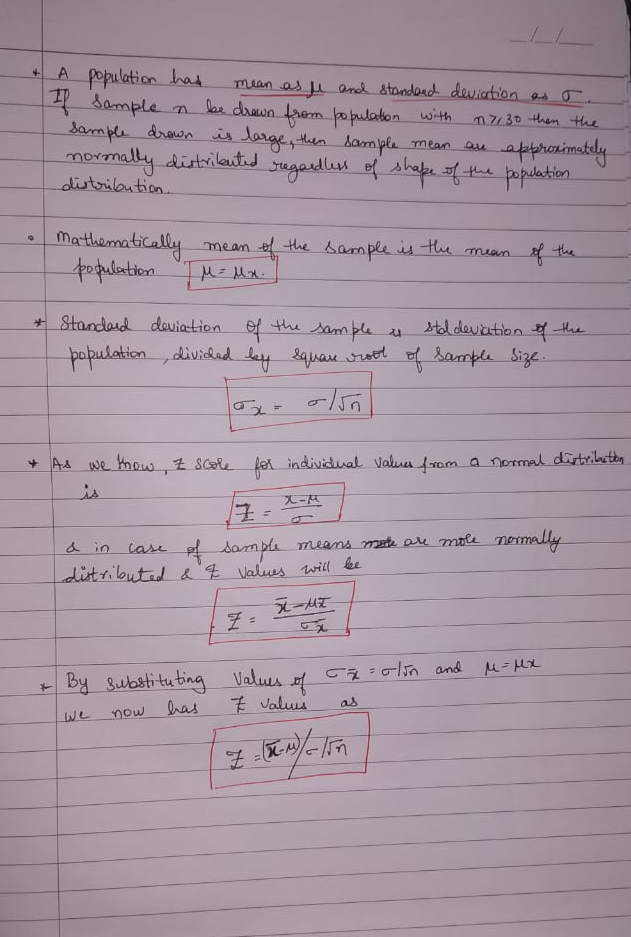 _/_/_
* A population has mean as μ and standard deviation as σ.
If Sample n be drawn from population with n≥30 then the
sample drawn is large, then sample mean are approximately
normally distributed regardless of shape of the population
distribution.
• Mathematically mean of the sample is the mean of the
population μ = μx.
* Standard deviation of the sample is std deviation of the
population, divided by square root of sample size.
σx = σ/√n
* As we know, Z score for individual values from a normal distribution
is
Z = x-μ/σ
& in case of sample means are more normally
distributed & Z values will be
Z = x̄-μx̄/σx̄
* By substituting Values of σx̄ = σ/√n and μ=μx
we now has Z values as
Z = (x̄-μ)/σ/√n